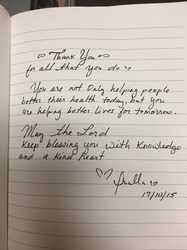 Thank You
for all that you do
You are not only helping people
better their health today, but you
are helping better lives for tomorrow.
May the Lord
keep blessing you with knowledge
and a kind heart
17/10/15